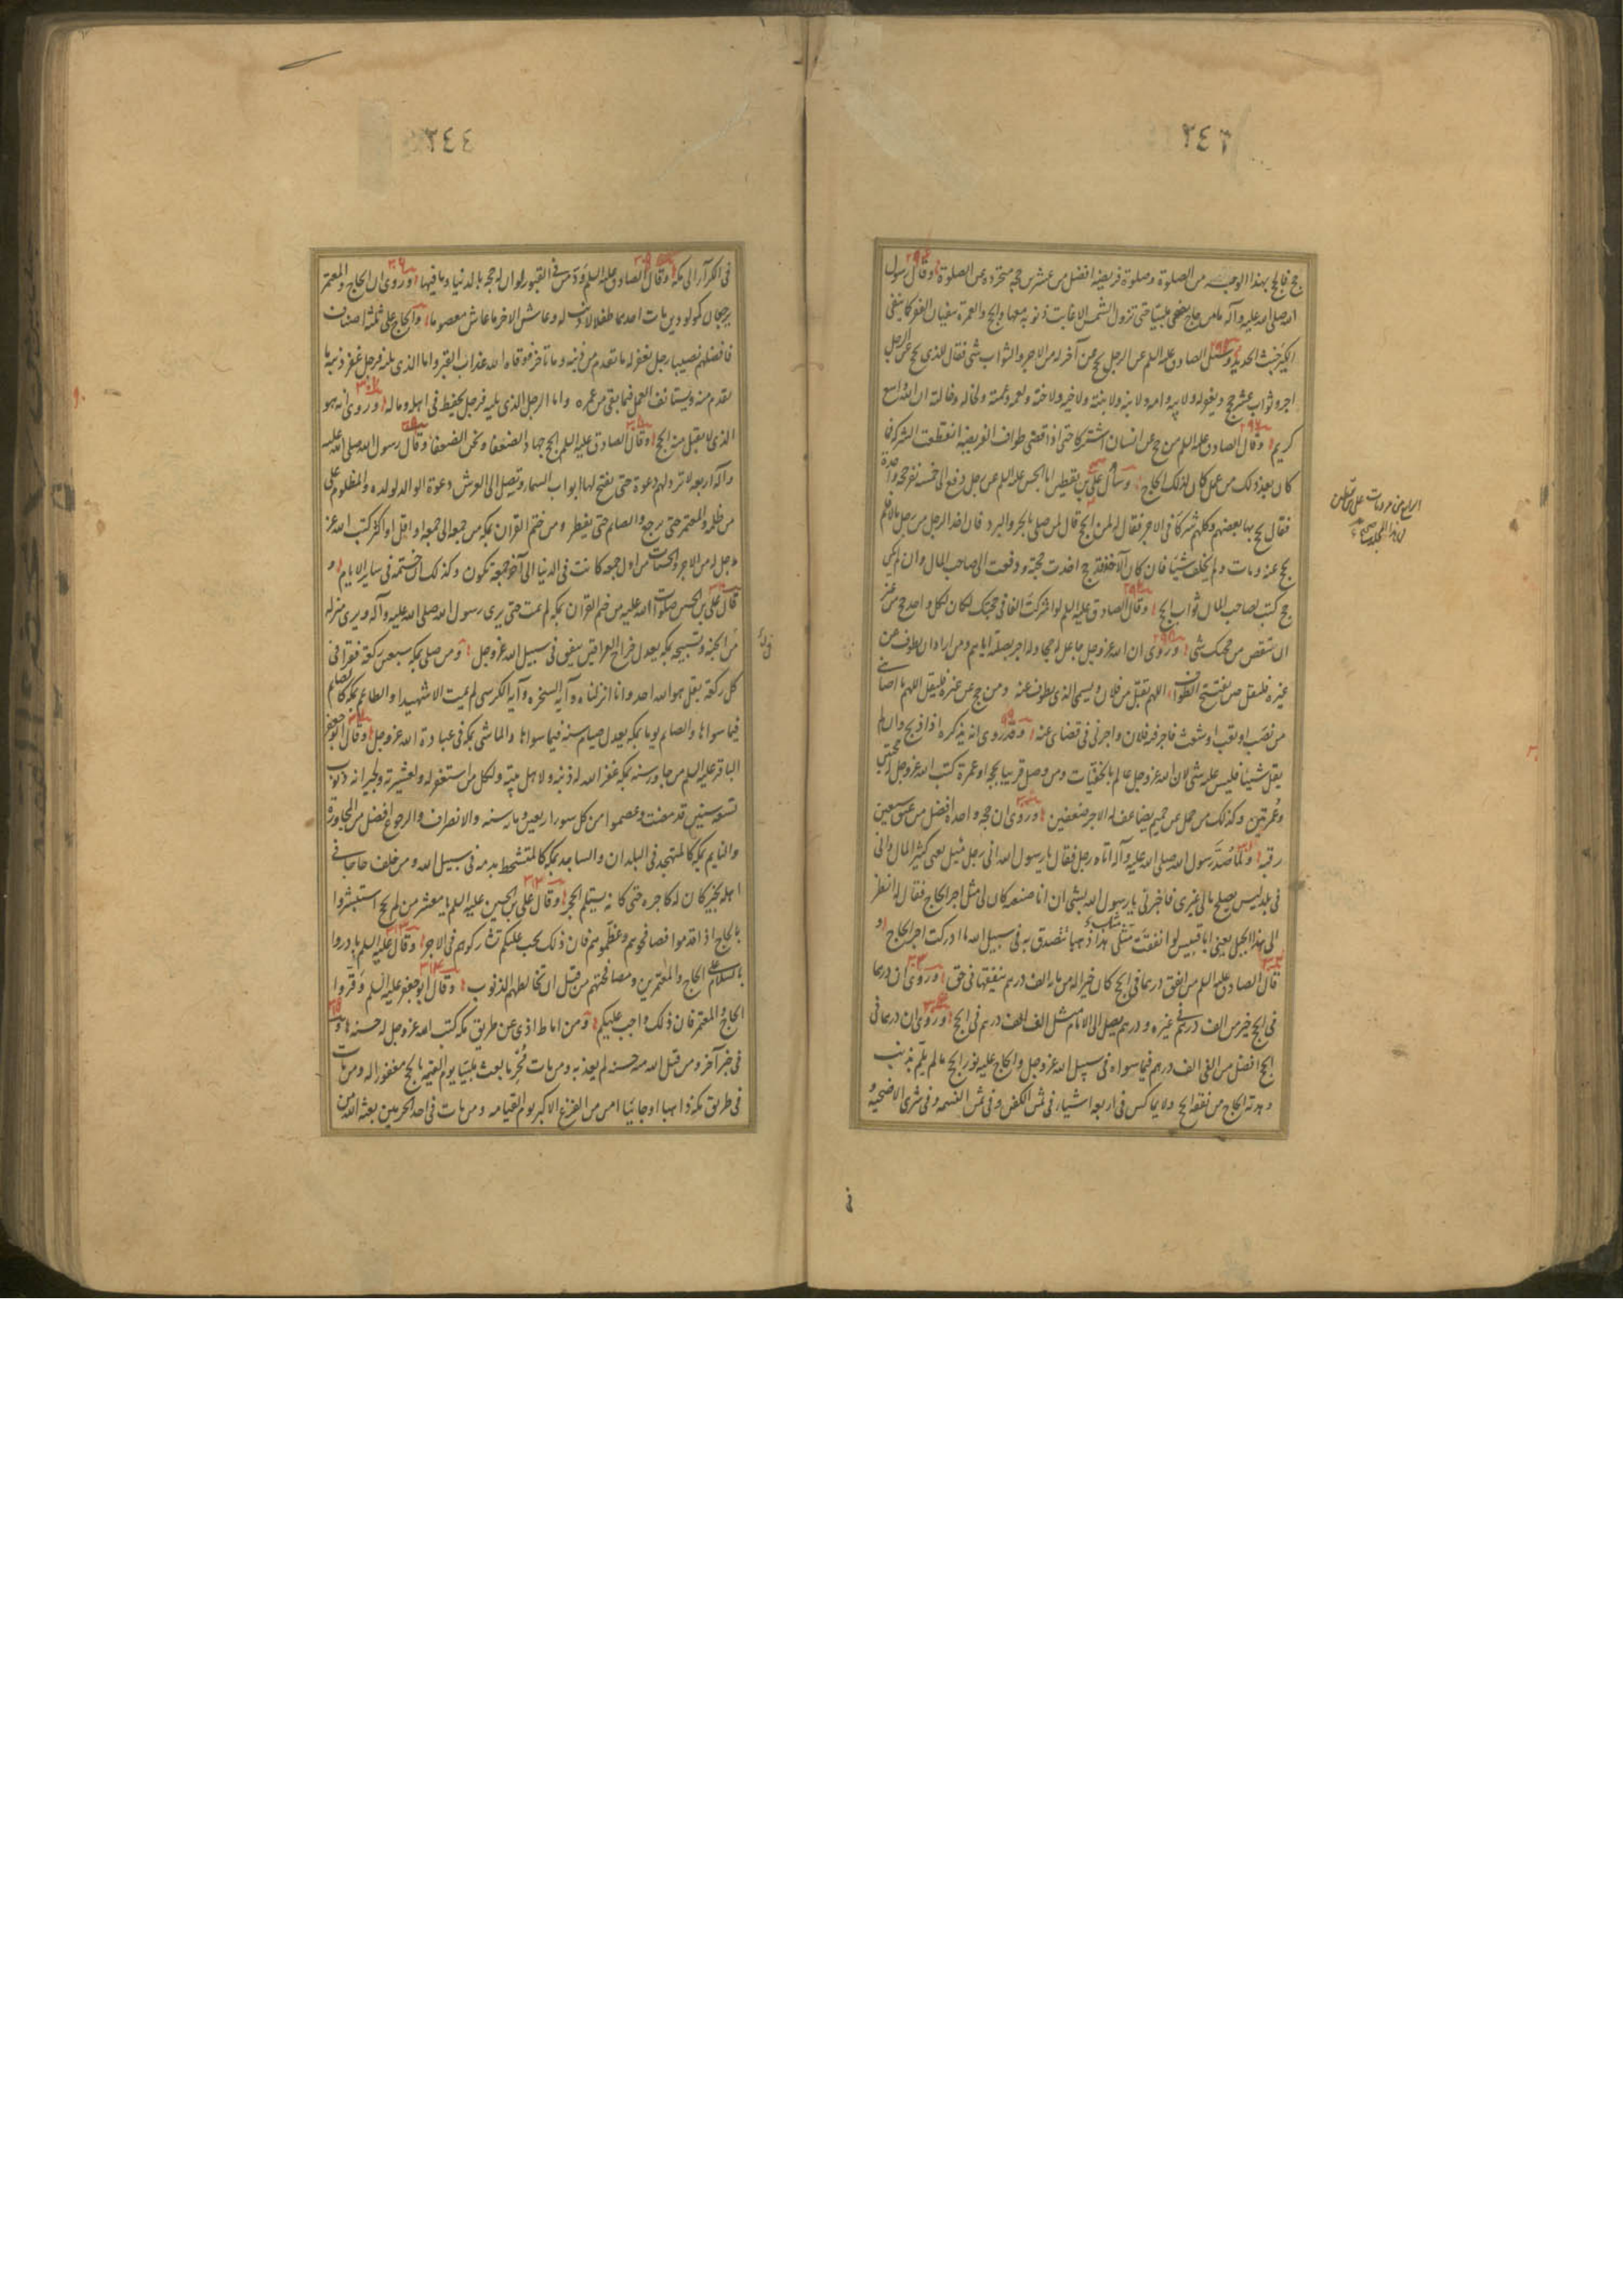 ٢٤٣
حج فالحج بهذا الوجه افضل من الصلوة وصلوة فريضة افضل من عشرين حجة متجردة عن الصلوة وقال رسول
الله صلى الله عليه وآله ما من حاج يضحي ملبيا حتى تزول الشمس الا غابت ذنوبه معها والحج والعمرة ينفيان الفقر كما ينفي
الكير خبث الحديد وسئل الصادق عليه السلم عن الرجل يحج عن آخر له من الاجر والثواب شئ فقال للذي يحج عن الرجل
اجر وثواب عشر حجج ويغفر له ولابيه وامه ولابنه ولابنته ولاخيه ولاخته ولعمه ولعمته ولخاله ولخالته ان الله واسع
كريم وقال الصادق عليه السلم من حج عن انسان اشتركا حتى اذا قضى طواف الفريضة انقطعت الشركة فما
كان بعد ذلك من عمل كان لذلك الحاج وسأل علي بن يقطين ابا الحسن عليه السلم عن رجل دفع الى خمسة نفر حجة واحدة
فقال يحج بها بعضهم وكلهم شركاء في الاجر فقال له لمن الحج قال لمن صلى بالحر والبرد فان اخذ الرجل من رجل مالا فلم
يحج عنه ومات ولم يخلف شيئا فان كان الآخذ قد حج اخذت حجته ودفعت الى صاحب المال وان لم يكن
حج كتب لصاحب المال ثواب الحج وقال الصادق عليه السلم لو اشركت الفا في حجتك لكان لكل واحد حج من غير
ان ينقص من حجك شئ وروى ان الله عز وجل جاعل له حجا ولهم حجا وله اجر بصلته اياهم ومن اراد ان يطوف عن
غيره فليقل حين يفتتح الطواف اللهم تقبل من فلان ويسمي الذي يطوف عنه ومن حج عن غيره فليقل اللهم ما اصابني
من نصب او تعب او شعث فاجر فيه فلان واجرني في قضائي عنه وقد روى انه يذكره اذا ذبح وان لم
يقل شيئا فليس عليه شئ لان الله عز وجل عالم بالخفيات ومن وصل قريبا بحجة او عمرة كتب الله عز وجل له حجتين
وعمرتين وكذلك من حمل عن حميم يضاعف له الاجر ضعفين وروى ان حجة واحدة افضل من عتق سبعين
رقبة ولما صد رسول الله صلى الله عليه وآله اتاه رجل فقال يا رسول الله اني رجل ميل يعني كثير المال واني
في بلد ليس يصلح مالي غيري فاخبرني يا رسول الله بشئ ان انا صنعته كان لي مثل اجر الحاج فقال له انظر
الى هذا الجبل يعني ابا قبيس لو انفقت مثل هذا ذهبا تتصدق به في سبيل الله ما ادركت اجر الحاج و
قال الصادق عليه السلم من انفق درهما في الحج كان خيرا له من مائة الف درهم ينفقها في حق وروى ان درهما
في الحج خير من الف درهم في غيره ودرهم يصل الى الامام مثل الف الف درهم في الحج وروى ان درهما في
الحج افضل من الفي الف درهم فيما سواه في سبيل الله عز وجل والحاج عليه نور الحج ما لم يلم بذنب
وهدية الحاج من نفقة الحج ولا يماكس في اربعة اشياء في ثمن الكفن وفي ثمن النسمة وفي شرى الاضحية و
في
٢٤٤
في الكراء الى مكة وقال الصادق عليه السلم ود من في القبور لو ان له حجة بالدنيا وما فيها وروى ان الحاج والمعتمر
يرجعان كمولودين مات احدهما طفلا لا ذنب له وعاش الآخر ما عاش معصوما والحاج على ثلثة اصناف
فافضلهم نصيبا رجل يغفر له ما تقدم من ذنبه وما تأخر ووقاه الله عذاب القبر واما الذي يليه فرجل غفر ذنبه ما
تقدم منه ويستأنف العمل فيما بقي من عمره واما الرجل الذي يليه فرجل يحفظ في اهله وماله وروى انه هو
الذي لا يقبل منه الحج وقال الصادق عليه السلم الحج جهاد الضعفاء ونحن الضعفاء وقال رسول الله صلى الله عليه
وآله اربعة لا ترد لهم دعوة حتى تفتح لها ابواب السماء وتصل الى العرش دعوة الوالد لولده والمظلوم على
من ظلمه والمعتمر حتى يرجع والصائم حتى يفطر ومن ختم القرآن بمكة من جمعة الى جمعة او اقل او اكثر كتب الله عز
وجل له من الاجر والحسنات من اول جمعة كانت في الدنيا الى آخر جمعة تكون وكذلك ان ختمه في ساير الايام و
قال علي بن الحسين صلوات الله عليه من ختم القرآن بمكة لم يمت حتى يرى رسول الله صلى الله عليه وآله ويرى منزله
من الجنة وتسبيحة بمكة يعدل خراج العراقين ينفق في سبيل الله عز وجل ومن صلى بمكة سبعين ركعة فقرأ في
كل ركعة بقل هو الله احد وانا انزلناه وآية السخرة وآية الكرسي لم يمت الا شهيدا والطاعم بمكة كالصايم
فيما سواها والصايم يوما بمكة يعدل صيام سنة فيما سواها والماشي بمكة في عبادة الله عز وجل وقال ابو جعفر
الباقر عليه السلم من جاور سنة بمكة غفر الله له ذنبه ولاهل بيته ولكل من استغفر له ولعشيرته ولجيرانه ذنوب
تسع سنين قد مضت وعصموا من كل سوء اربعين ومائة سنة والانصراف والرجوع افضل من المجاورة
والنايم بمكة كالمتهجد في البلدان والساجد بمكة كالمتشحط بدمه في سبيل الله ومن خلف حاجا في
اهله بخير كان له كاجره حتى كانه يستلم الحجر وقال علي بن الحسين عليه السلم يا معشر من لم يحج استبشروا
بالحاج اذا قدموا فصافحوهم وعظموهم فان ذلك يجب عليكم تشاركوهم في الاجر وقال عليه السلم بادروا
بالسلام على الحاج والمعتمرين ومصافحتهم من قبل ان تخالطهم الذنوب وقال ابو جعفر عليه السلم وقروا
الحاج والمعتمر فان ذلك واجب عليكم ومن اماط اذى عن طريق مكة كتب الله عز وجل له حسنة
في خبر آخر ومن قبل الله منه حسنة لم يعذبه ومن مات محرما بعث ملبيا يوم القيمة بالحج مغفورا له ومن مات
في طريق مكة ذاهبا او جائيا امن من الفزع الاكبر يوم القيامة ومن مات في احد الحرمين بعثه الله من